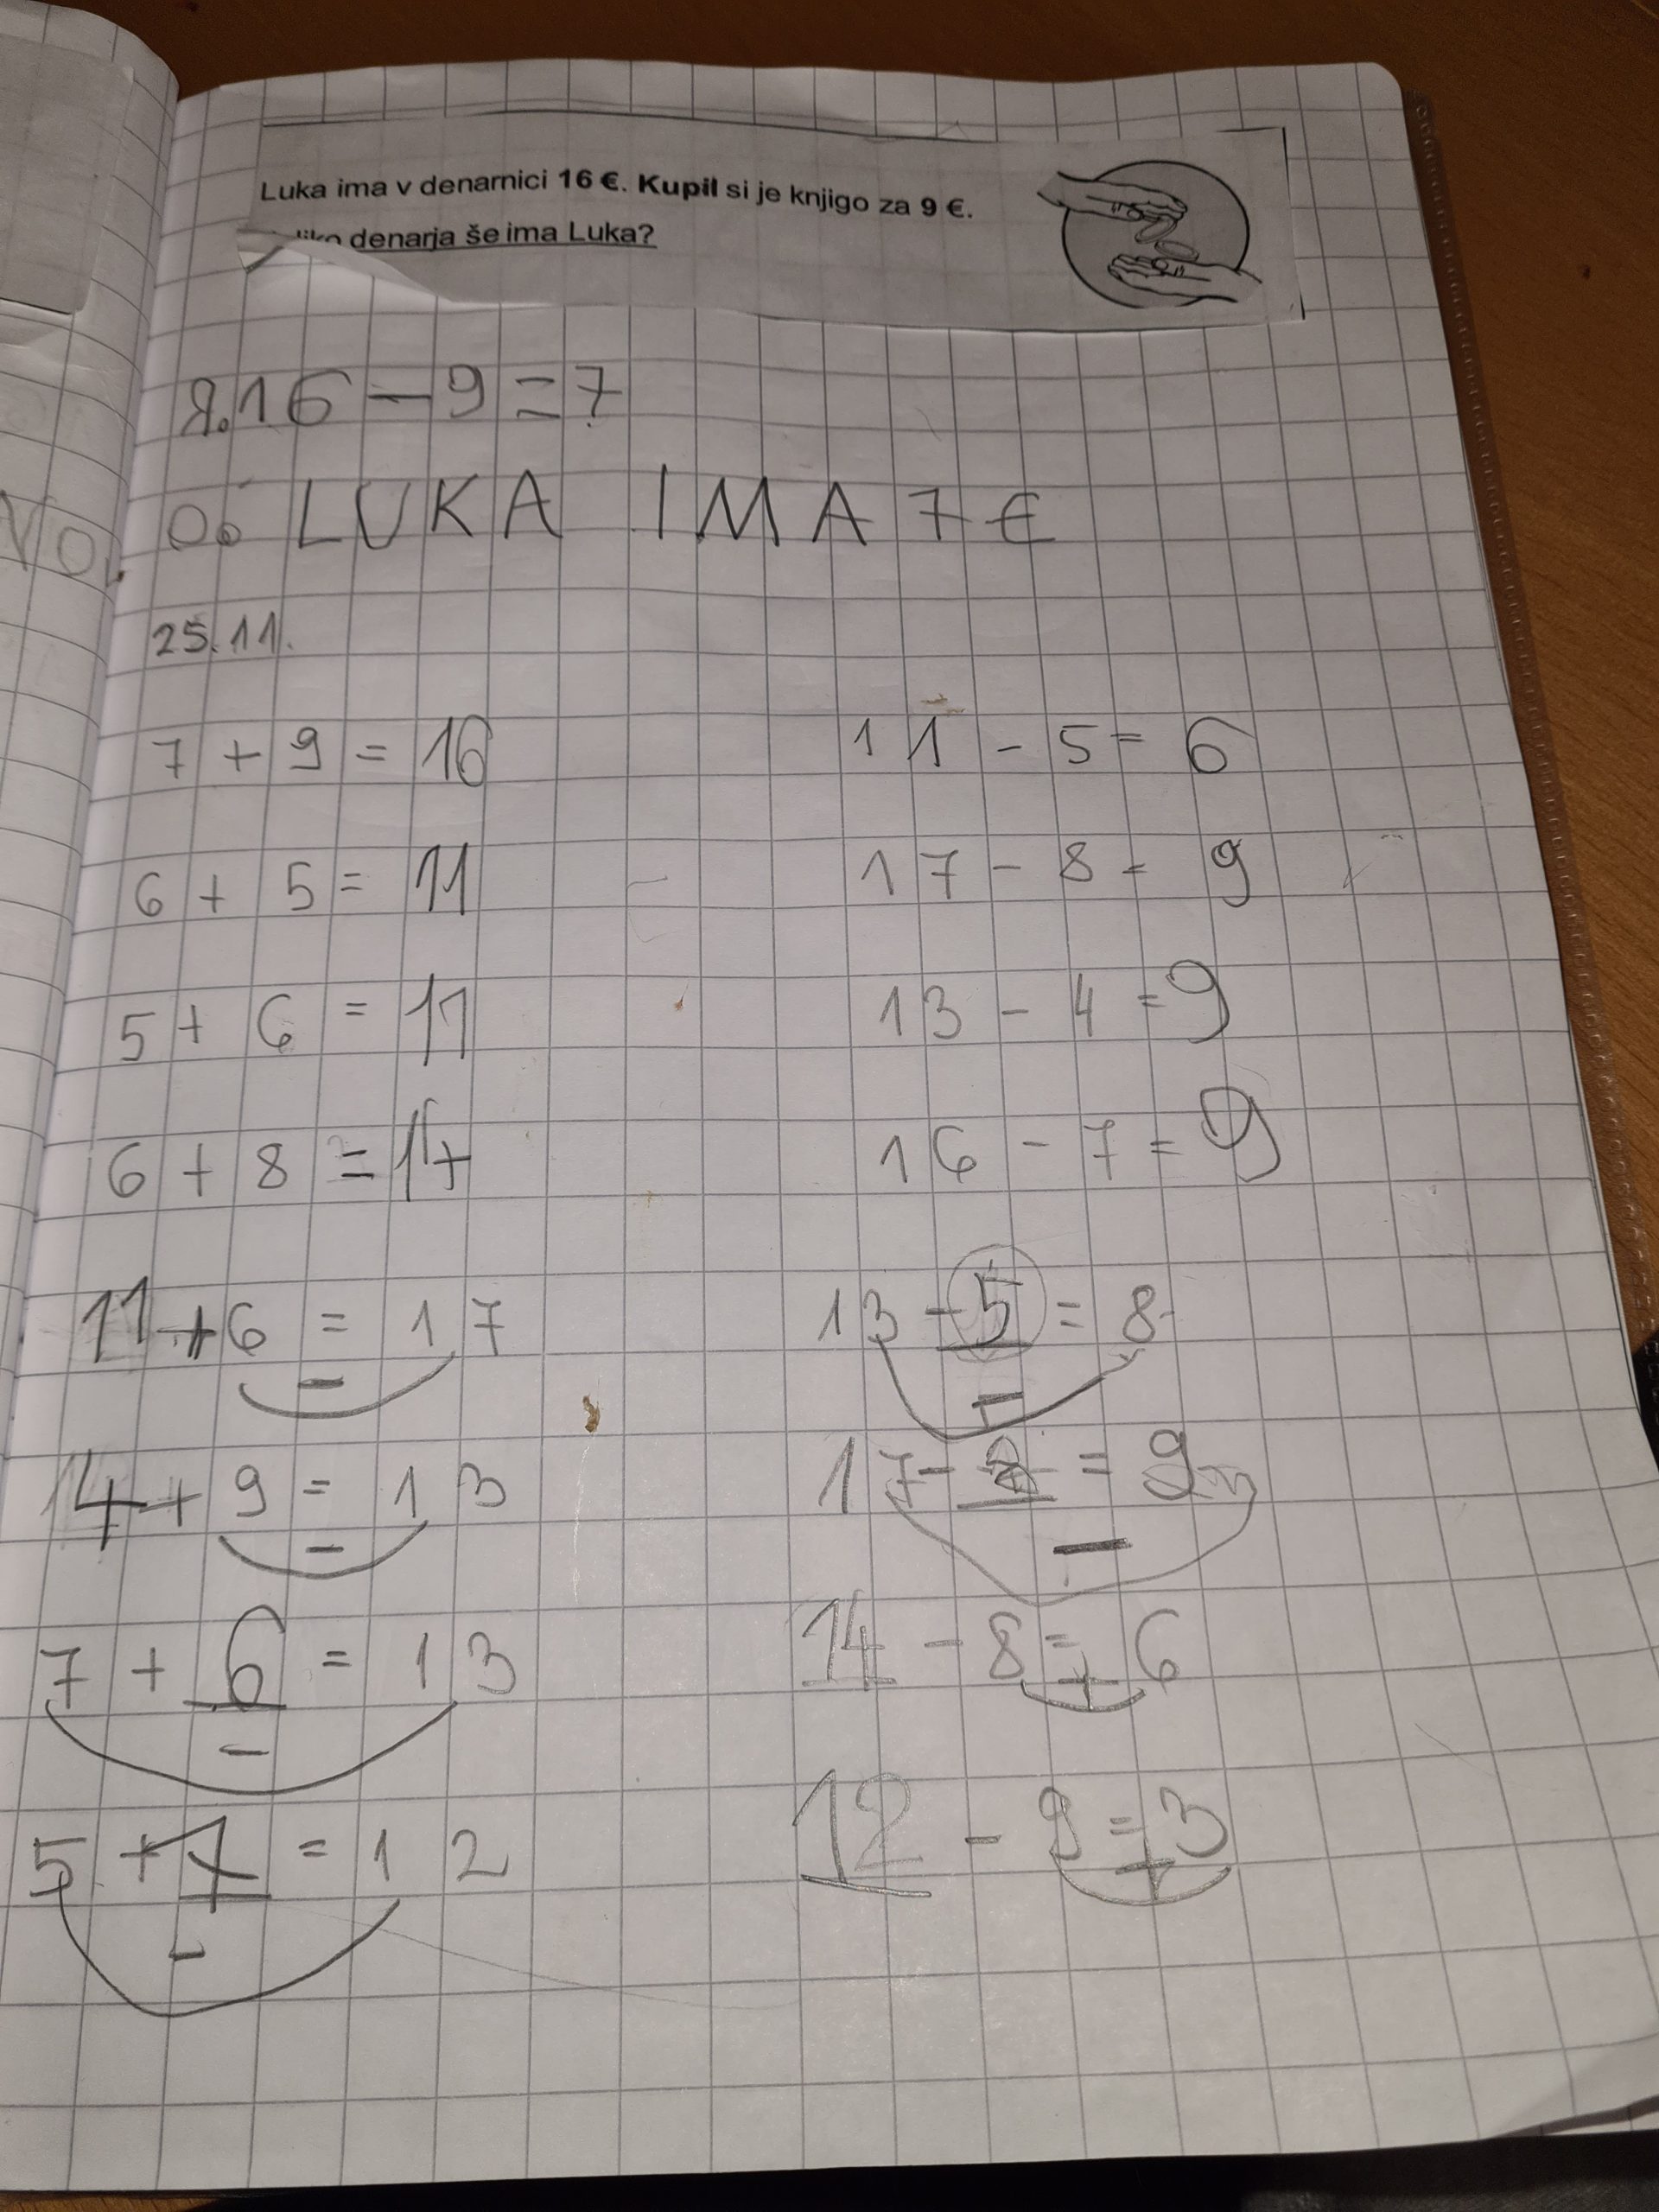 Luka ima v denarnici 16 €. Kupil si je knjigo za 9 €.
denarja še ima Luka?
R. 16 - 9 = 7
O: LUKA IMA 7 €
25.11.
7 + 9 = 16
11 - 5 = 6
6 + 5 = 11
17 - 8 = 9
5 + 6 = 11
13 - 4 = 9
6 + 8 = 14
16 - 7 = 9
11 + 6 = 17
-
13 - 5 = 8
-
14 + 9 = 13
-
17 - 8 = 9
-
7 + 6 = 13
-
14 - 8 = 6
+
5 + 7 = 12
-
12 - 9 = 3
+